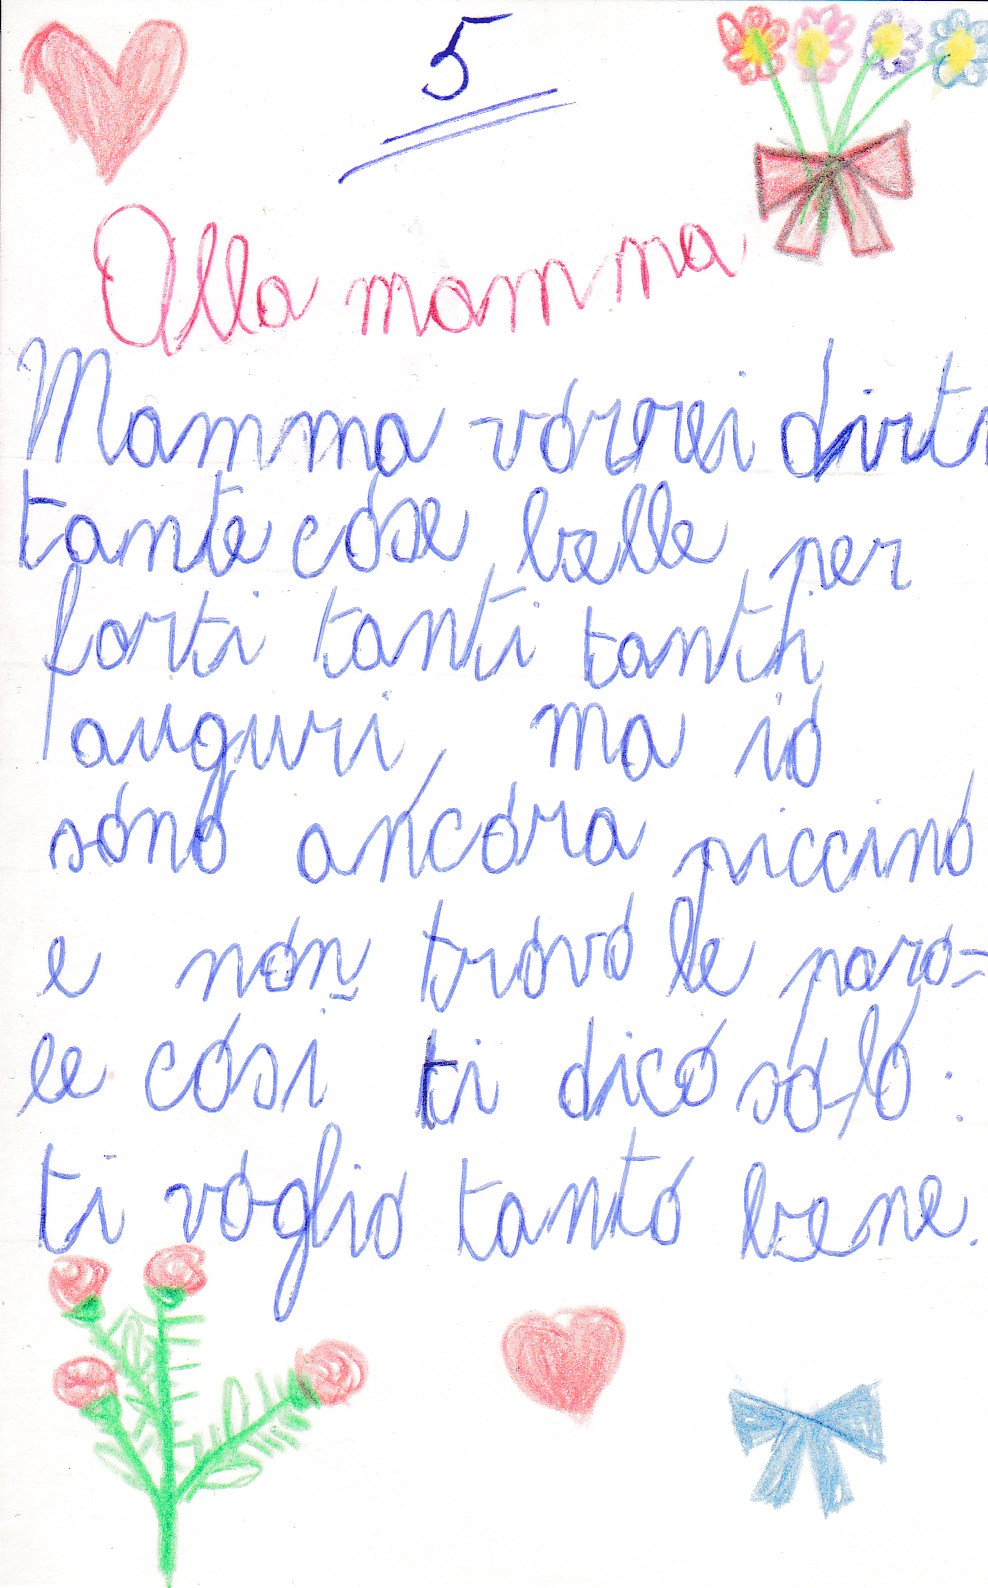 5
Alla mamma
Mamma vorrei dirti
tante cose belle per
farti tanti tanti
auguri, ma io
sono ancora piccino
e non trovo le paro=
le cosi ti dico solo:
ti voglio tanto bene.